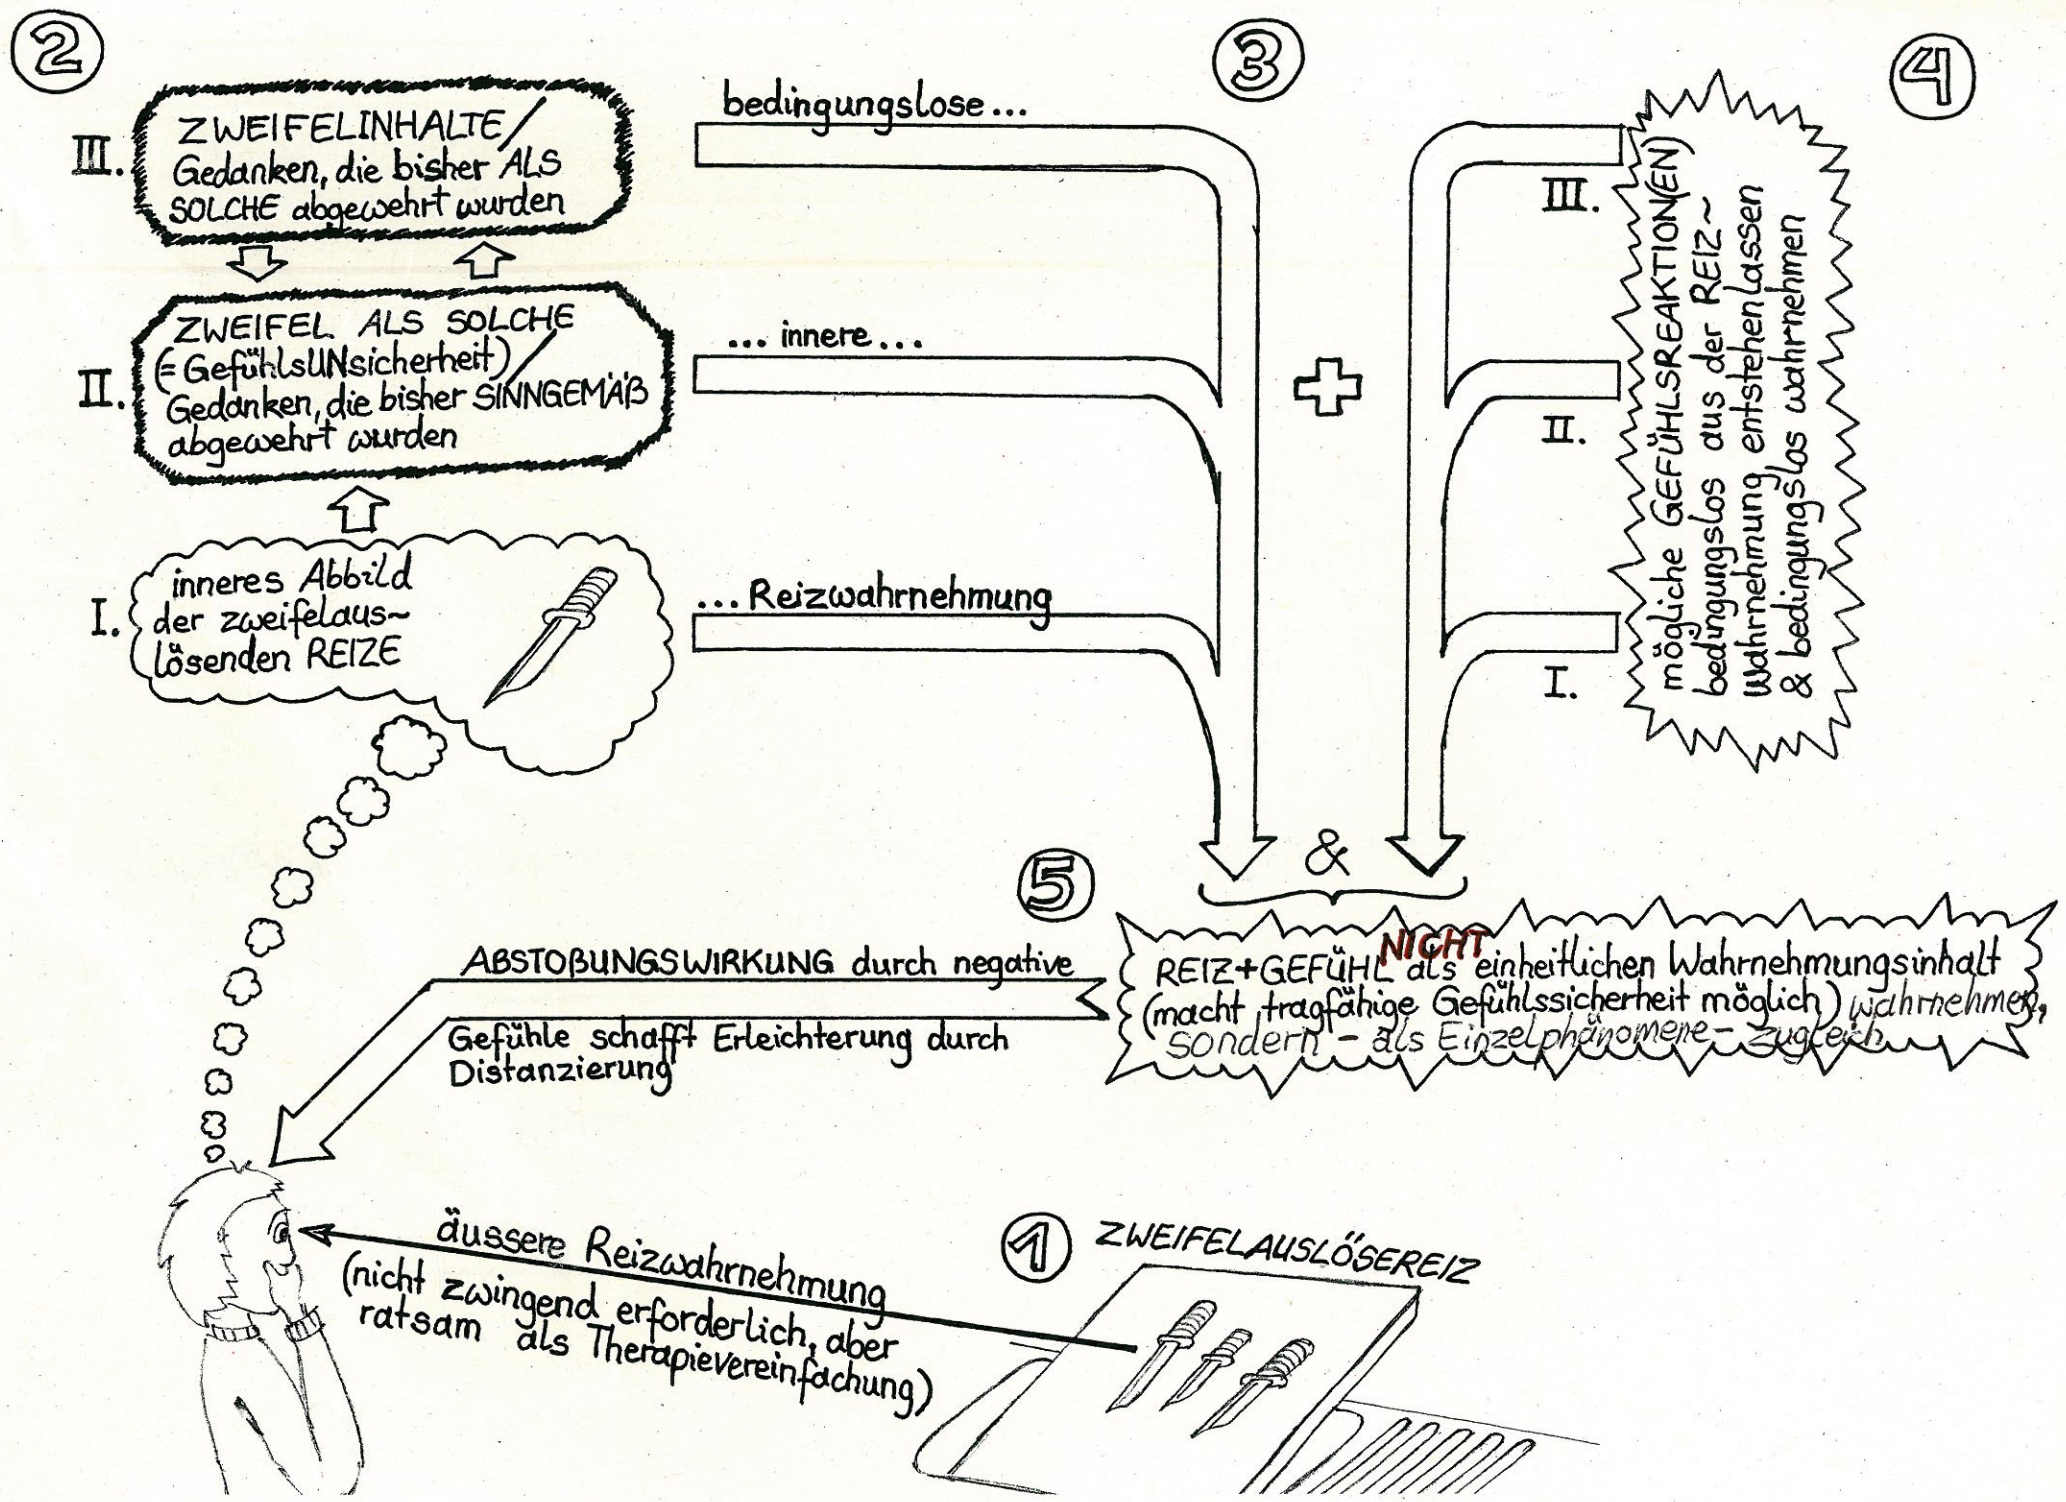 2
III.
ZWEIFELINHALTE/
Gedanken, die bisher ALS
SOLCHE abgewehrt wurden
II.
ZWEIFEL ALS SOLCHE
(= GefühlsUNsicherheit)/
Gedanken, die bisher SINNGEMÄß
abgewehrt wurden
I.
inneres Abbild
der zweifelaus~
lösenden REIZE
3
bedingungslose...
... innere...
...Reizwahrnehmung
+
&
4
III.
II.
I.
mögliche GEFÜHLSREAKTION(EN)
bedingungslos aus der REIZ~
wahrnehmung entstehen lassen
& bedingungslos wahrnehmen
5
NICHT
REIZ+GEFÜHL als einheitlichen Wahrnehmungsinhalt
(macht tragfähige Gefühlssicherheit möglich) wahrnehmen,
sondern - als Einzelphänomene - zugleich
ABSTOßUNGSWIRKUNG durch negative
Gefühle schafft Erleichterung durch
Distanzierung
1
ZWEIFELAUSLÖSEREIZ
äussere Reizwahrnehmung
(nicht zwingend erforderlich, aber
ratsam als Therapievereinfachung)